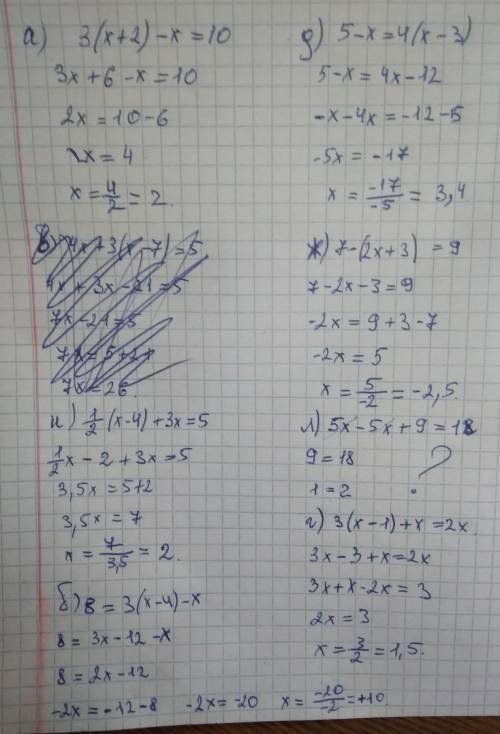 а) 3(x+2)-x=10
3x+6-x=10
2x=10-6
2x=4
x=4/2=2.
в) 4x+3(x-7)=5
4x+3x-21=5
7x-21=5
7x=5+21
7x=26.
и) 1/2(x-4)+3x=5
1/2x-2+3x=5
3,5x=5+2
3,5x=7
x=7/3,5=2.
б) 8=3(x-4)-x
8=3x-12-x
8=2x-12
-2x=-12-8 -2x=-20 x=-20/-2=+10
д) 5-x=4(x-3)
5-x=4x-12
-x-4x=-12-5
-5x=-17
x=-17/-5=3,4
ж) 7-(2x+3)=9
7-2x-3=9
-2x=9+3-7
-2x=5
x=5/-2=-2,5.
л) 5x-5x+9=18
9=18
1=2 ?
г) 3(x-1)+x=2x
3x-3+x=2x
3x+x-2x=3
2x=3
x=3/2=1,5.